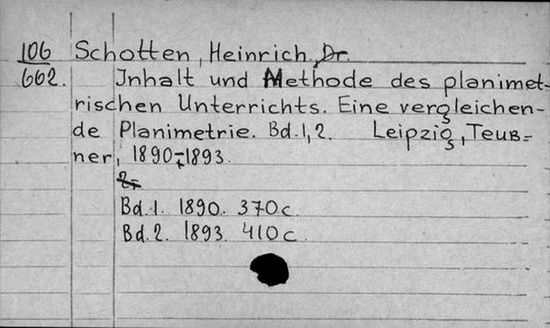 106 Schotten, Heinrich, Dr.
662. Inhalt und Methode des planimet-
rischen Unterrichts. Eine vergleichen-
de Planimetrie. Bd. 1, 2. Leipzig, Teub=
ner, 1890-1893.
2-
Bd. 1. 1890. 370 c.
Bd. 2. 1893. 410 c.